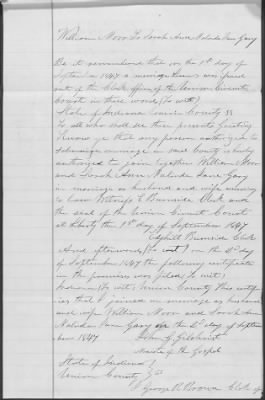 William Moor To Sarah Ann Malinda Jane Gary
Be it remembered that on the 1st day of
September 1847 a marriage license was issued
out of the Clerks office of the Union Circuit
Court in these words (To wit)
State of Indiana Union County SS
To all who shall see these presents Greeting
Know ye that any person authorized to
solemnize marriage in said County is hereby
authorized to join together William Moor
and Sarah Ann Malinda Jane Gary
in marriage as husband and wife
Witness E Burnside Clerk and
the seal of the Union Circuit Court
at Liberty this 1st day of September 1847
Edghill Burnside Clerk
And afterwards (To wit) on the day
of September 1847 the following certificate
in the premises was filed (To wit)
Indiana (To wit) Union County This certif
ies that I joined in marriage as husband
and wife William Moor and Sarah Ann
Malinda Jane Gary on the 2d day of Septem
ber 1847
John G Gilchrist
Minister of the Gospel
State of Indiana
Union County SS
I George R Brown Clerk of